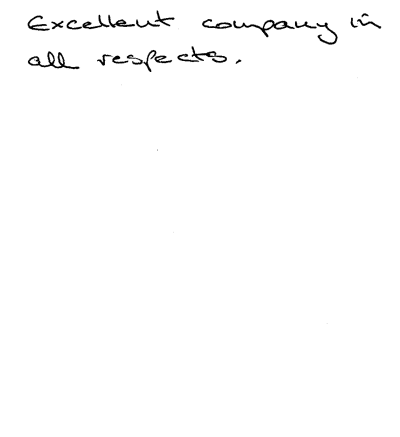 Excellent company in
all respects.